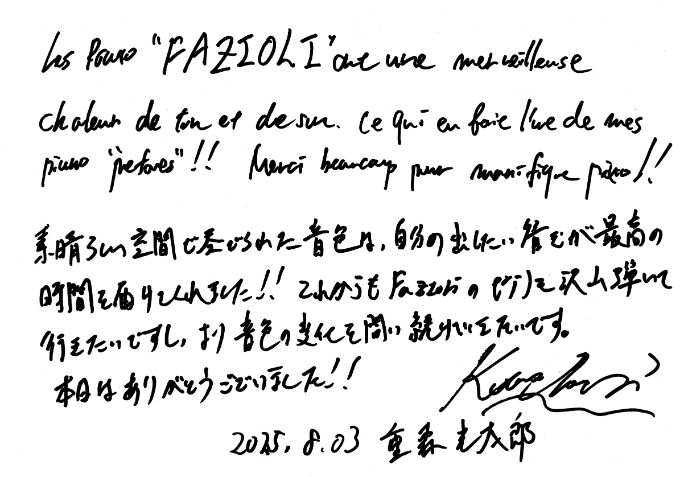 Les Piano "FAZIOLI" ont une merveilleuse
chaleur de ton et de son. Ce qui en fait l'un de mes
piano "préférés"!! Merci beaucoup pour manifique piano!!
素晴らしい空間で奏でられた音色は、自分の出したい音が最高の
時間を届けてくれました!! これからも Fazioli のピアノを沢山弾いて
行きたいですし、より音色の変化を問い続けていきたいです。
本日はありがとうございました!!
2025.8.03 重森光太郎